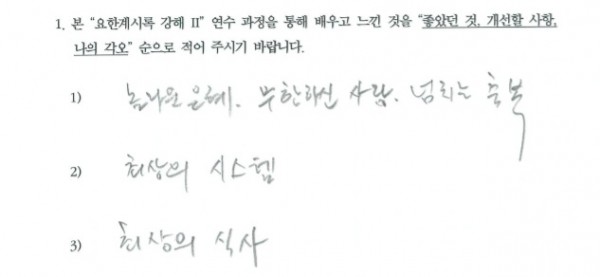 1. 본 "요한계시록 강해 II" 연수 과정을 통해 배우고 느낀 것을 "좋았던 것, 개선할 사항,
나의 각오" 순으로 적어 주시기 바랍니다.
1) 놀라운 은혜. 무한하신 사랑. 넘치는 축복
2) 최상의 시스템
3) 최상의 식사